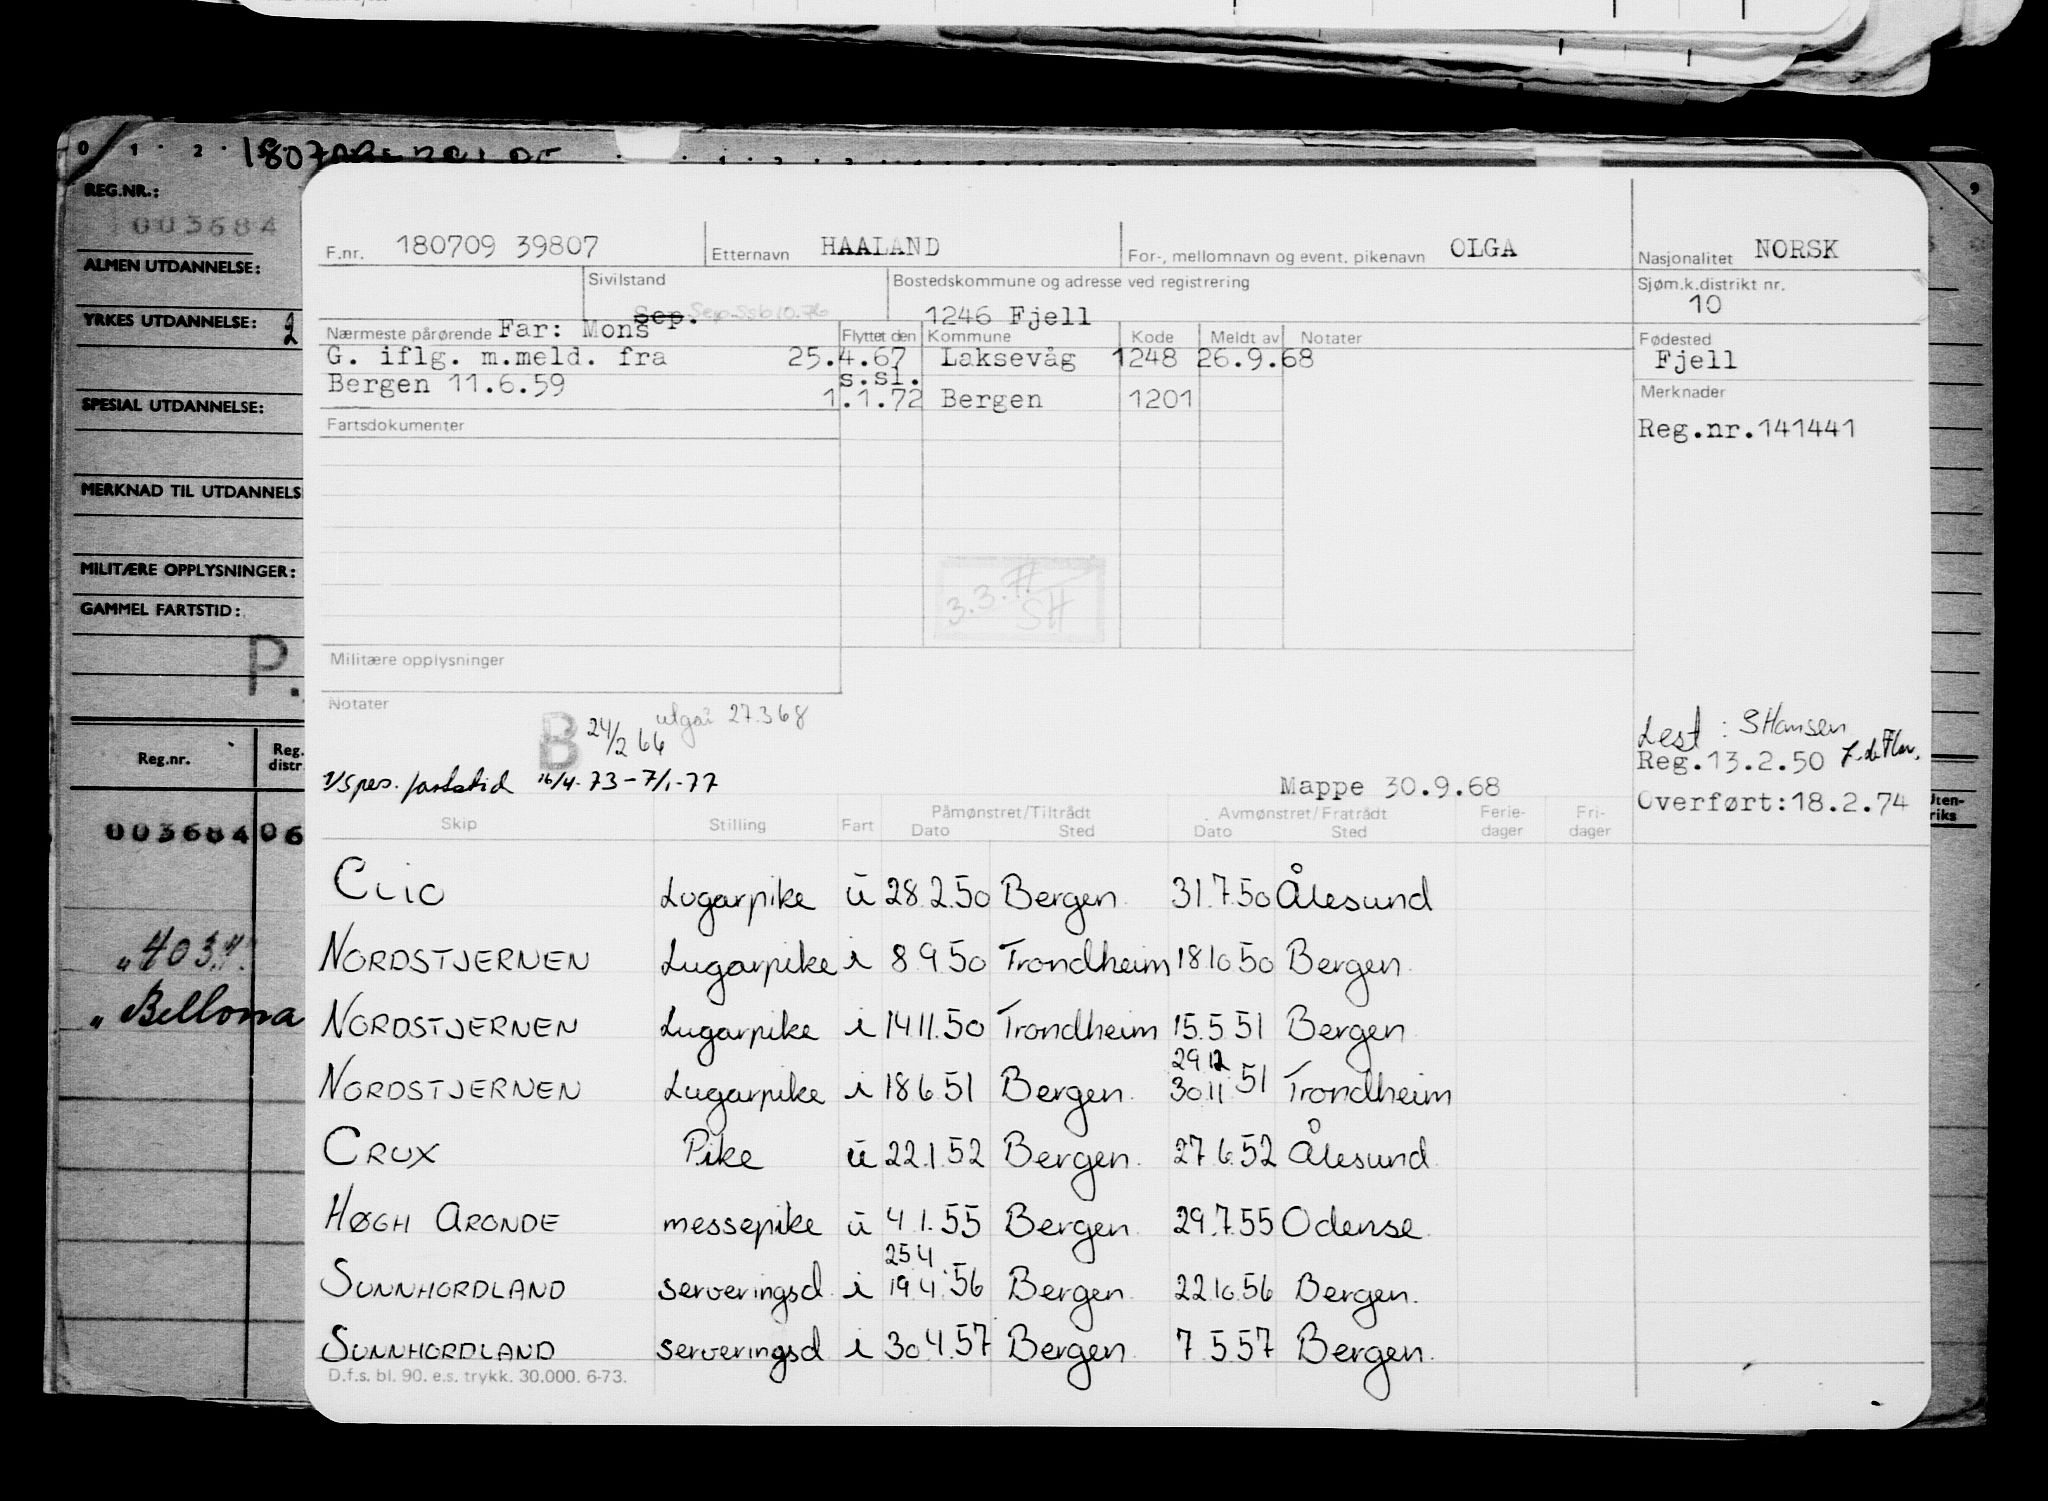 0 1 2
REG.NR.:
003684
ALMEN UTDANNELSE:
YRKES UTDANNELSE: 2
SPESIAL UTDANNELSE:
MERKNAD TIL UTDANNELS
MILITÆRE OPPLYSNINGER:
GAMMEL FARTSTID:
P.
Reg.nr. Reg. distr
003684 06
" 403
" Bellona
9
Uten-
riks
F.nr. 180709 39807 Etternavn HAALAND For-, mellomnavn og event. pikenavn OLGA Nasjonalitet NORSK
Sivilstand Bostedskommune og adresse ved registrering Sjøm.k.distrikt nr.
Sep. Sep. Ssb 10.76 1246 Fjell 10
Nærmeste pårørende Far: Mons Flyttet den Kommune Kode Meldt av Notater Fødested
G. iflg. m.meld. fra 25.4.67 Laksevåg 1248 26.9.68 Fjell
Bergen 11.6.59 s.sl.
1.1.72 Bergen 1201 Merknader
Fartsdokumenter Reg.nr.141441
3.3.77
SH
Militære opplysninger
Notater
B 24/2 66 utgår 27.3.68
Lest : S Hansen
Reg.13.2.50
1/5 pes. fartstid 16/4-73-7/1-77 Mappe 30.9.68
Overført:18.2.74
Skip Stilling Fart Påmønstret/Tiltrådt Avmønstret/Fratrådt Ferie- Fri-
Dato Sted Dato Sted dager dager
CLIO Lugarpike u 28.2.50 Bergen 31.7.50 Ålesund
NORDSTJERNEN Lugarpike i 8 9.50 Trondheim 18.10 50 Bergen
NORDSTJERNEN Lugarpike i 14.11.50 Trondheim 15.5 51 Bergen
29 12
NORDSTJERNEN Lugarpike i 18 6 51 Bergen 30.11 51 Trondheim
CRUX Pike u 22.1.52 Bergen 27.6.52 Ålesund
HØGH ARONDE messepike u 4.1.55 Bergen 29.7.55 Odense
25 4
SUNNHORDLAND serveringsd i 19.4.56 Bergen 22.10.56 Bergen.
SUNNHORDLAND serveringsd i 30 4.57 Bergen 7 5 57 Bergen.
D.f.s. bl. 90. e.s. trykk. 30.000. 6-73.